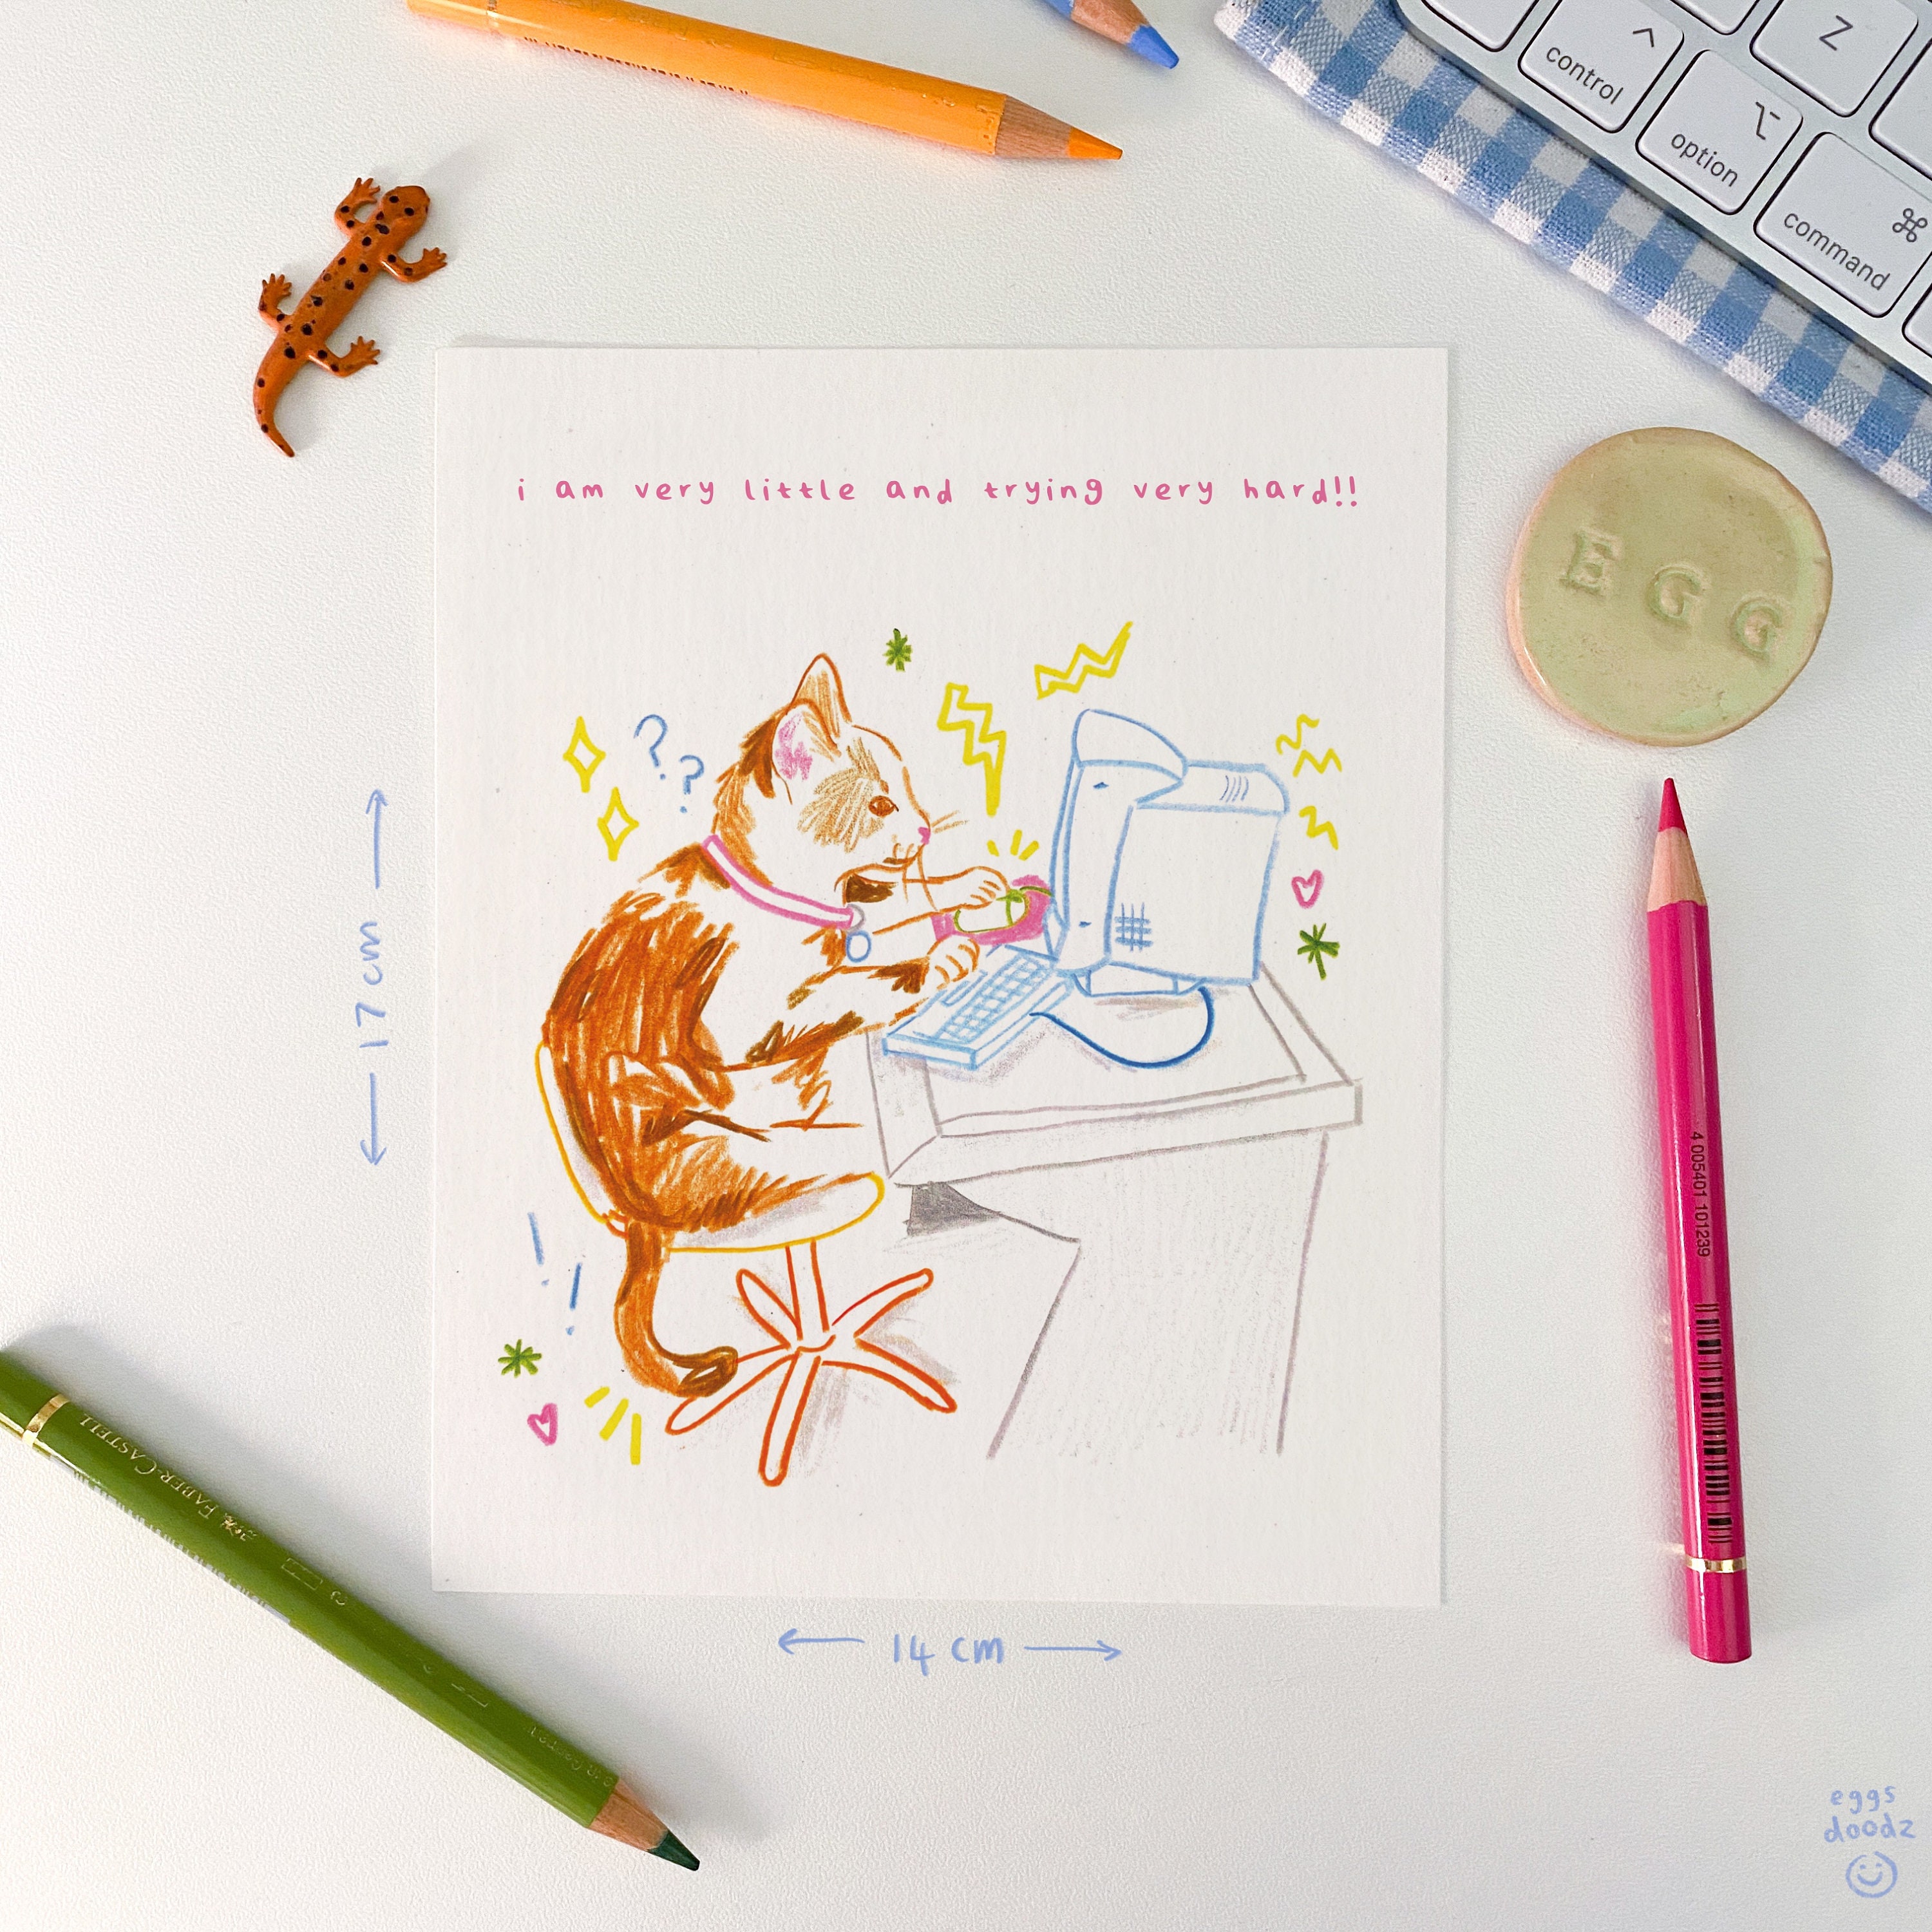 ^
control
⌥
option
⌘
command
Z
i am very little and trying very hard!!
EGG
??
17cm
!!
4 005401 101239
FABER-CASTELL
14 cm
eggs
doodz